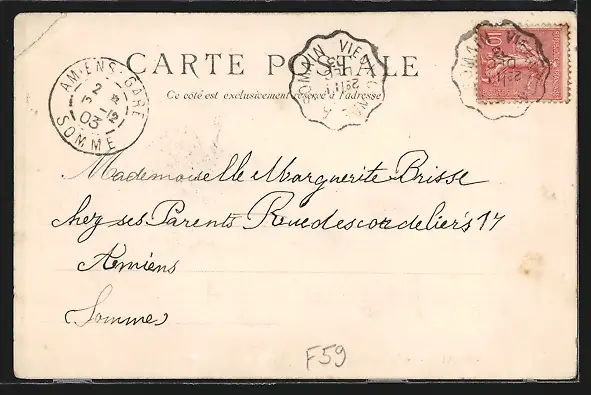 CARTE POSTALE
Ce côté est exclusivement réservé à l'adresse
AMIENS-GARE
2
3 -12
03
SOMME
10
Mademoiselle Marguerite Brisse
chez ses Parents Rue des cordeliers 17
Amiens
Somme
F59